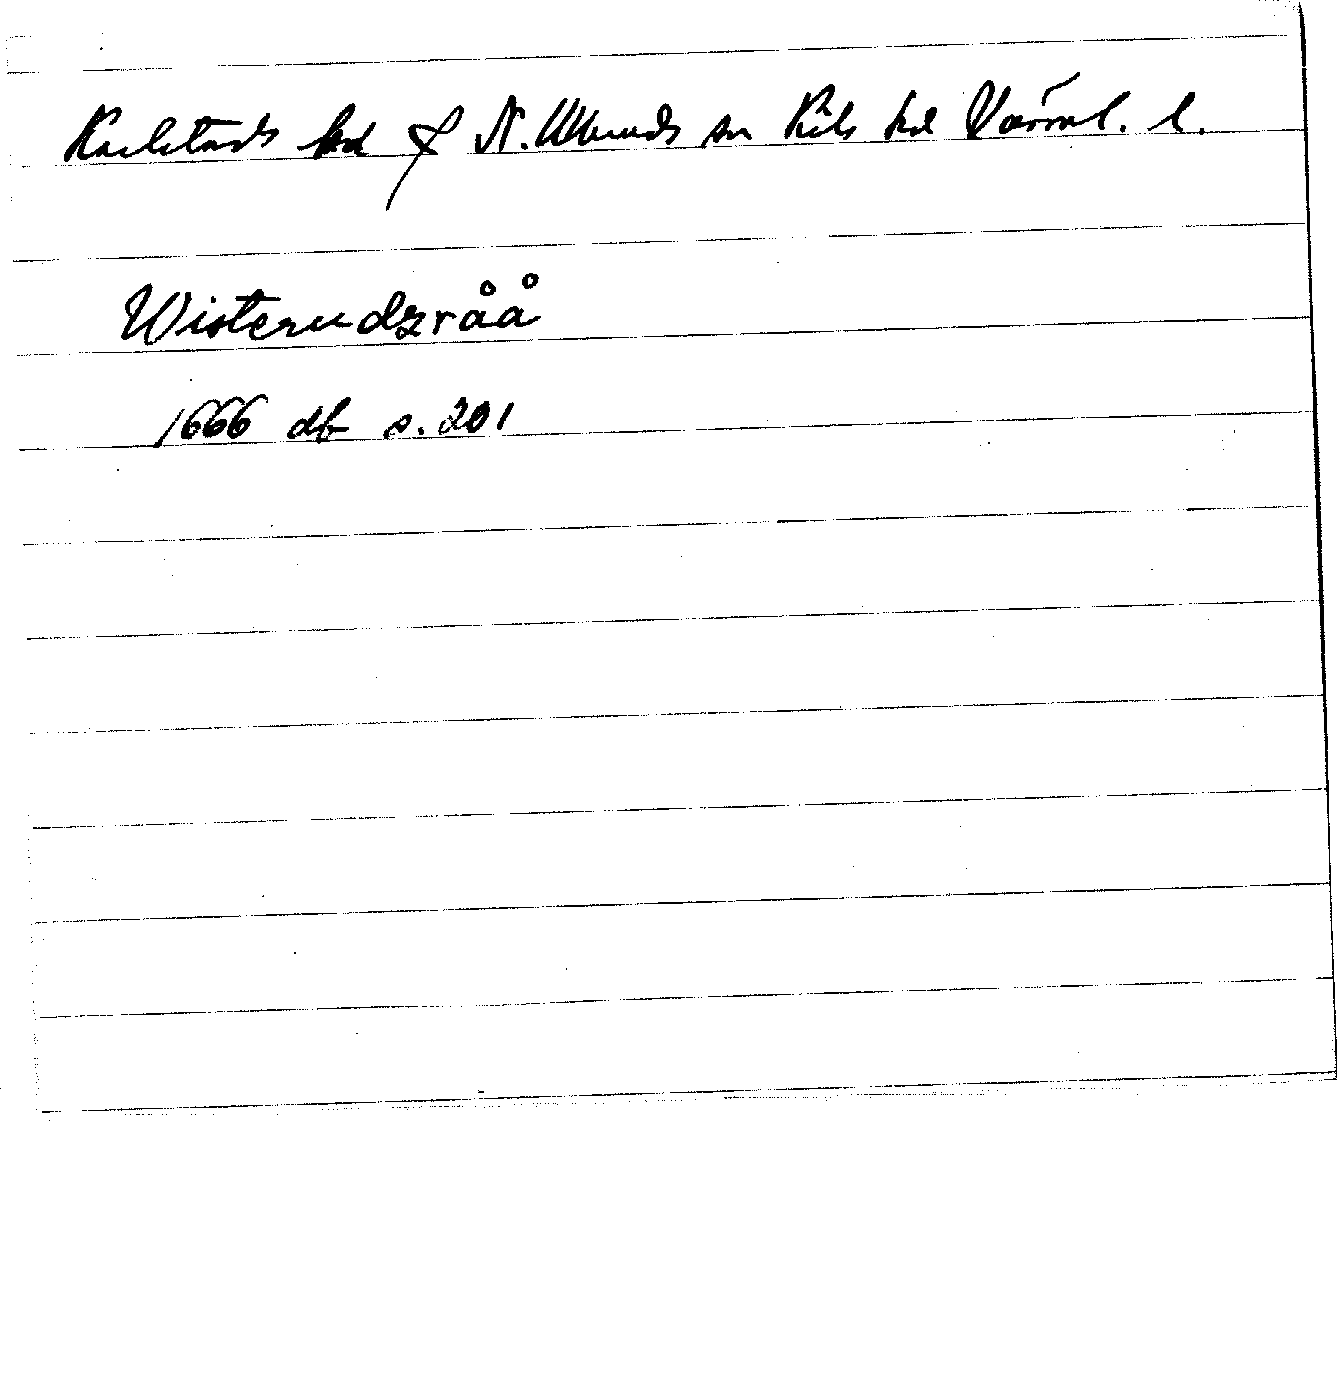 Karlstads hd f N. Ulleruds sn Kils hd Värml. l.
Wisterudzråå
1666 db s. 201